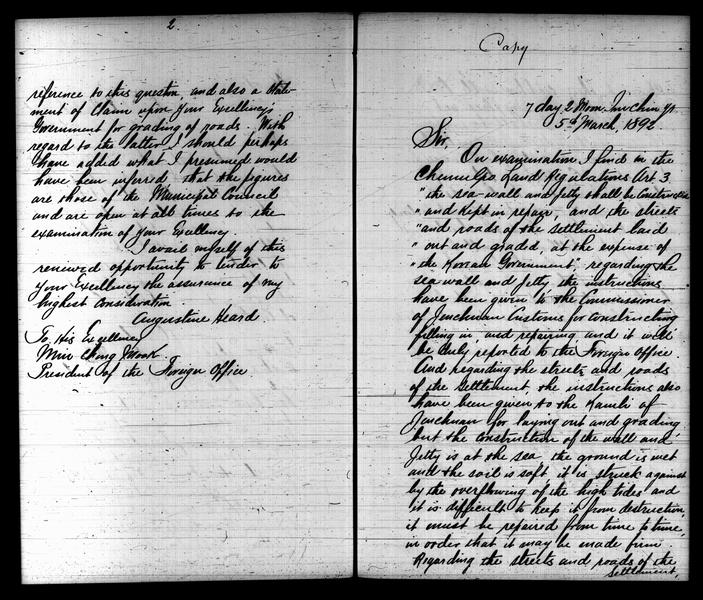 2
reference to this question and also a State-
ment of Claim upon Your Excellency's
Government for grading of roads. With
regard to the latter I should perhaps
have added what I presumed would
have been inferred that the figures
are those of the Municipal Council
and are open at all times to the
examination of Your Excellency.
I avail myself of this
renewed opportunity to tender to
Your Excellency the assurance of my
highest consideration.
Augustine Heard.
To His Excellency
Min Chong Mook
President of the Foreign Office
Copy
7 day 2 Moon
5th March, 1892
Sir,
On examination I find in the
Chemulpo Land Regulations Art 3
"the sea-wall and Jetty shall be Constructed
" and kept in repair, and the streets
"and roads of the settlement laid
" out and graded, at the expense of
"the Korean Government", regarding the
sea wall and Jetty, the instructions
have been given to the Commissioner
of Jenchuan Customs for Constructing
filling in, and repairing and it will
be duly reported to the Foreign Office.
And regarding the streets and roads
of the Settlement the instructions also
have been given to the Kamli of
Jenchuan for laying out and grading
but the construction of the wall and
Jetty is at the sea the ground is wet
and the soil is soft it is struck against
by the overflowing of the high tides and
it is difficult to keep it from destruction,
it must be repaired from time to time,
in order that it may be made firm.
Regarding the streets and roads of the
Settlement,